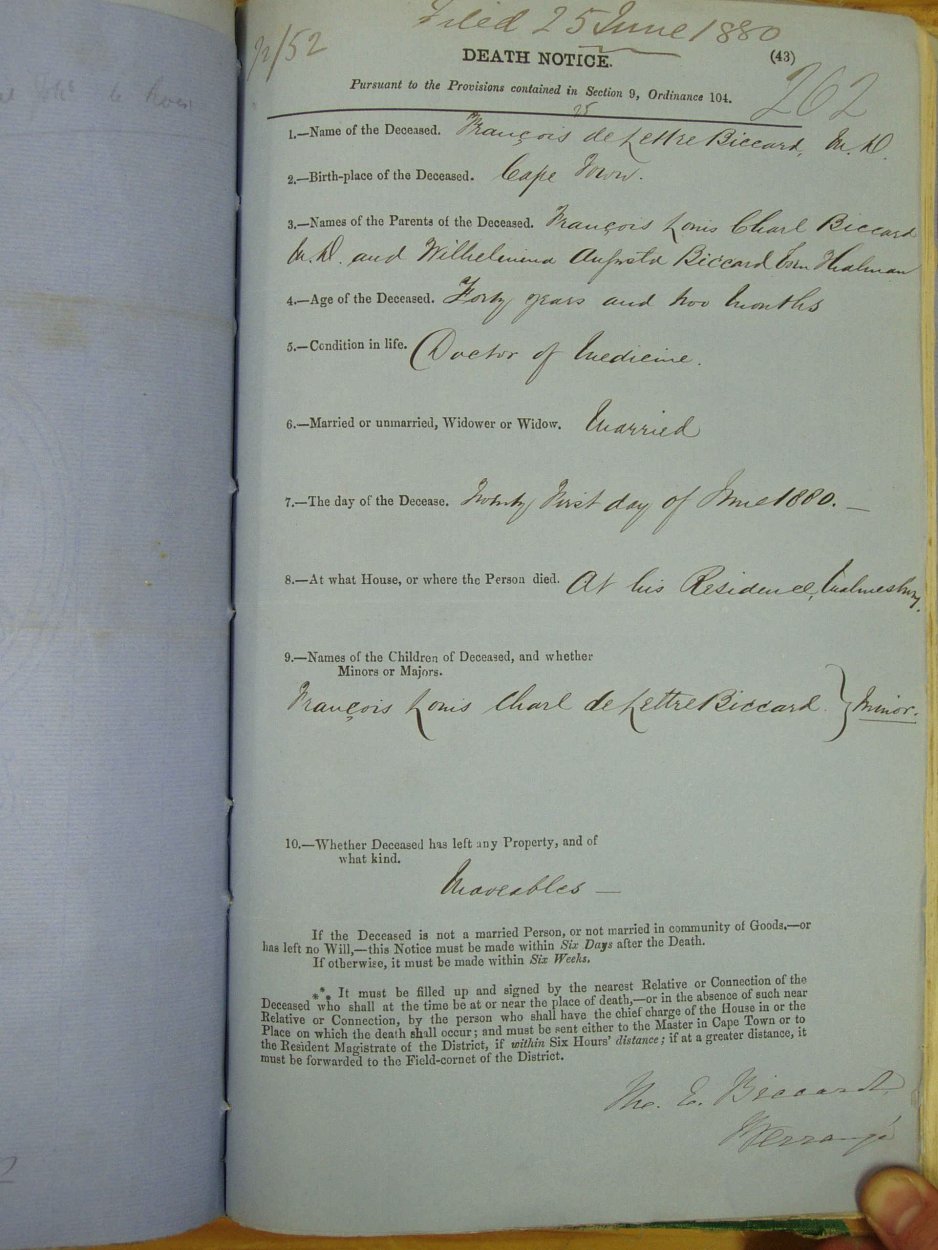 Filed 25 June 1880
72/52
DEATH NOTICE.
(43)
262
Pursuant to the Provisions contained in Section 9, Ordinance 104.
25
1.—Name of the Deceased. François de Lettre Biccard, M.D.
2.—Birth-place of the Deceased. Cape Town.
3.—Names of the Parents of the Deceased. François Louis Charl Biccard
M.D. and Wilhelmina Augusta Biccard born Hialman
4.—Age of the Deceased. Forty years and two months
5.—Condition in life. Doctor of Medicine.
6.—Married or unmarried, Widower or Widow. Married
7.—The day of the Decease. Twenty First day of June 1880.—
8.—At what House, or where the Person died. At his Residence, Malmesbury.
9.—Names of the Children of Deceased, and whether
Minors or Majors.
François Louis Charl de Lettre Biccard } Minor.
10.—Whether Deceased has left any Property, and of
what kind.
Moveables —
If the Deceased is not a married Person, or not married in community of Goods,—or
has left no Will,—this Notice must be made within Six Days after the Death.
If otherwise, it must be made within Six Weeks.
*** It must be filled up and signed by the nearest Relative or Connection of the
Deceased who shall at the time be at or near the place of death,—or in the absence of such near
Relative or Connection, by the person who shall have the chief charge of the House in or the
Place on which the death shall occur; and must be sent either to the Master in Cape Town or to
the Resident Magistrate of the District, if within Six Hours' distance; if at a greater distance, it
must be forwarded to the Field-cornet of the District.
E. Biccard,